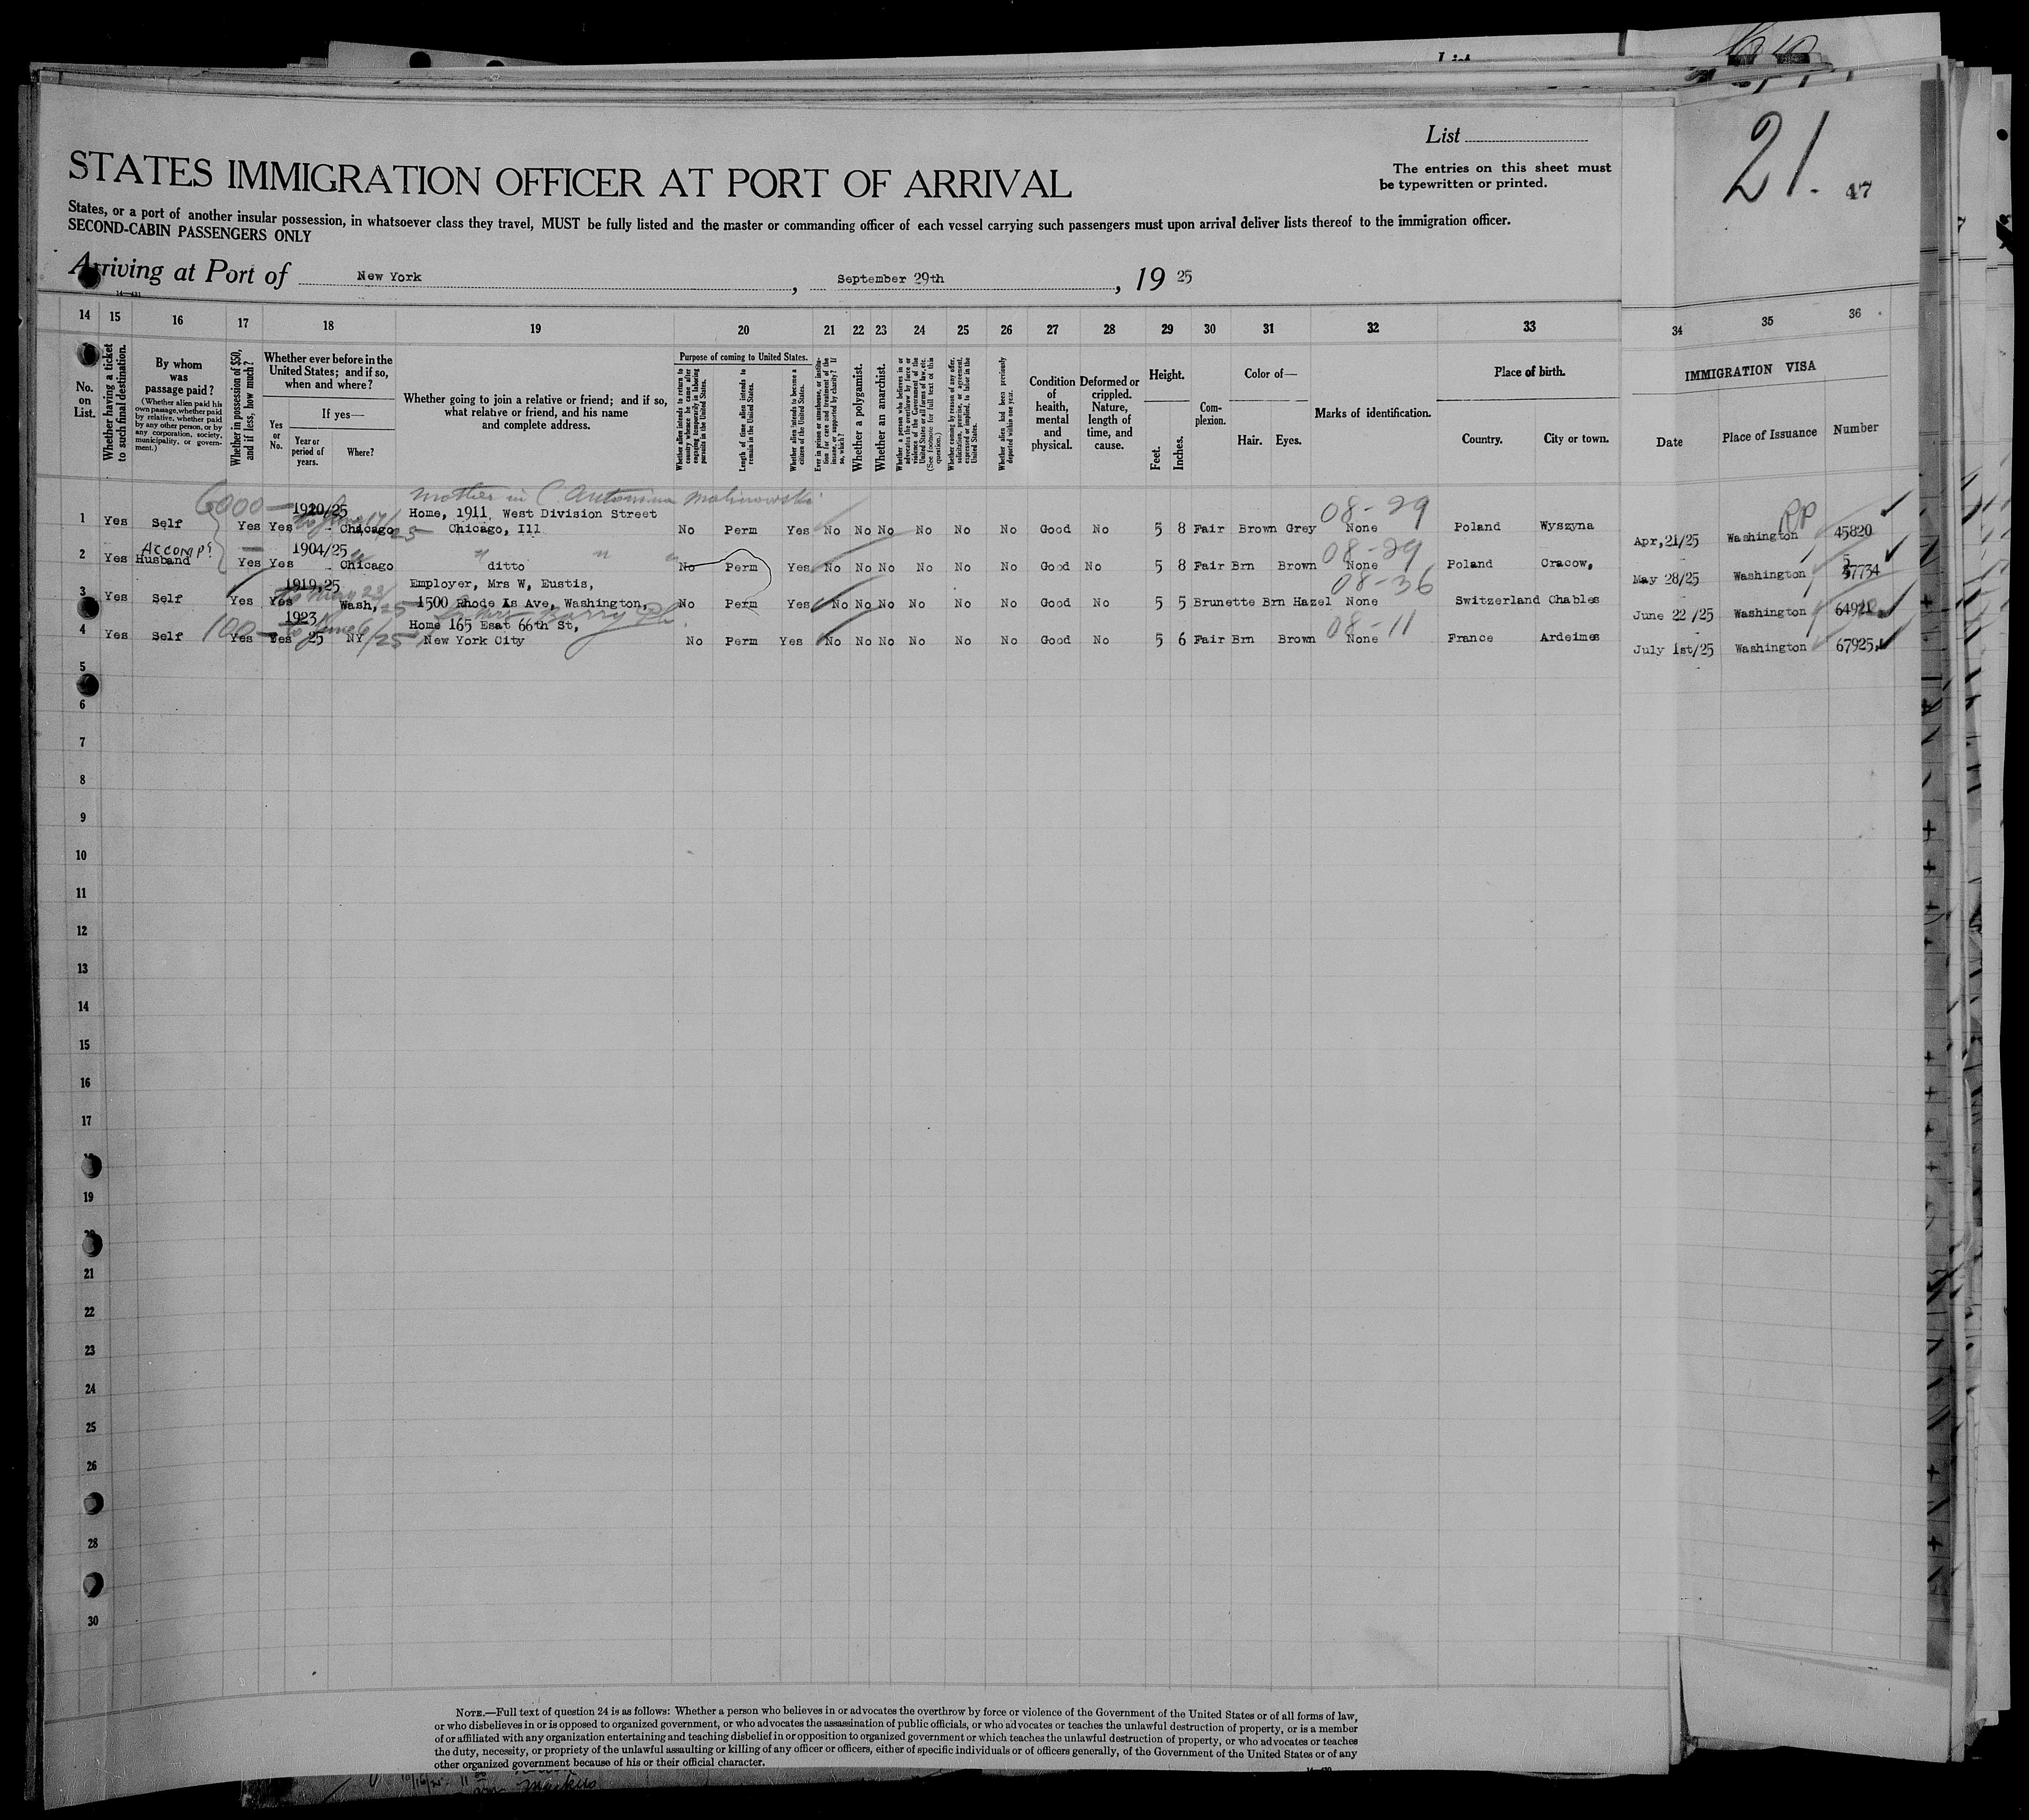 List
21.
47
The entries on this sheet must
be typewritten or printed.
STATES IMMIGRATION OFFICER AT PORT OF ARRIVAL
States, or a port of another insular possession, in whatsoever class they travel, MUST be fully listed and the master or commanding officer of each vessel carrying such passengers must upon arrival deliver lists thereof to the immigration officer.
SECOND-CABIN PASSENGERS ONLY
Arriving at Port of New York, September 29th, 19 25
14 15 16 17 18 19 20 21 22 23 24 25 26 27 28 29 30 31 32 33 34 35 36
No. on List.
Whether having a ticket to such final destination.
By whom was passage paid?
(Whether alien paid his own passage, whether paid by relative, whether paid by any other person, or by any corporation, society, municipality, or government.)
Whether in possession of $50, and if less, how much?
Whether ever before in the United States; and if so, when and where?
Yes or No.
If yes—
Year or period of years.
Where?
Whether going to join a relative or friend; and if so, what relative or friend, and his name and complete address.
Purpose of coming to United States.
Whether alien intends to return to country whence he came after engaging temporarily in laboring pursuits in the United States.
Length of time alien intends to remain in the United States.
Whether alien intends to become a citizen of the United States.
Ever in prison or almshouse, or institution for care and treatment of the insane, or supported by charity? If so, which?
Whether a polygamist.
Whether an anarchist.
Whether a person who believes in or advocates the overthrow by force or violence of the Government of the United States or all forms of law, etc. (See footnote for full text of this question.)
Whether coming by reason of any offer, solicitation, promise, or agreement, expressed or implied, to labor in the United States.
Whether alien had been previously deported within one year.
Condition of health, mental and physical.
Deformed or crippled. Nature, length of time, and cause.
Height.
Feet.
Inches.
Complexion.
Color of—
Hair. Eyes.
Marks of identification.
Place of birth.
Country. City or town.
IMMIGRATION VISA
Date Place of Issuance Number
6000— 1920/25 mother in Antonina Malinowski 08-29 RP
Home, 1911, West Division Street
1 Yes Self Yes Yes Chicago Chicago, Ill No Perm Yes No No No No No No Good No 5 8 Fair Brown Grey None Poland Wyszyna Apr,21/25 Washington 45820
Accomp. — 1904/25 " " " 08-29
2 Yes Husband Yes Yes Chicago ditto No Perm Yes No No No No No No Good No 5 8 Fair Brn Brown None Poland Cracow, May 28/25 Washington 57734
1919,25 Employer, Mrs W, Eustis, 08-36
3 Yes Self Yes Yes to May 23/25 Wash, 1500 Rhode Is Ave, Washington, No Perm Yes No No No No No No Good No 5 5 Brunette Brn Hazel None Switzerland Chables June 22/25 Washington 64921
1923 Home 165 Esat 66th St, 08-11
4 Yes Self 100— Yes Yes 25 to June 6/25 NY New York City No Perm Yes No No No No No No Good No 5 6 Fair Brn Brown None France Ardeimes July 1st/25 Washington 67925
5
6
7
8
9
10
11
12
13
14
15
16
17
19
21
22
23
24
25
26
28
30
NOTE.—Full text of question 24 is as follows: Whether a person who believes in or advocates the overthrow by force or violence of the Government of the United States or of all forms of law,
or who disbelieves in or is opposed to organized government, or who advocates the assassination of public officials, or who advocates or teaches the unlawful destruction of property, or is a member
of or affiliated with any organization entertaining and teaching disbelief in or opposition to organized government or which teaches the unlawful destruction of property, or who advocates or teaches
the duty, necessity, or propriety of the unlawful assaulting or killing of any officer or officers, either of specific individuals or of officers generally, of the Government of the United States or of any
other organized government because of his or their official character.